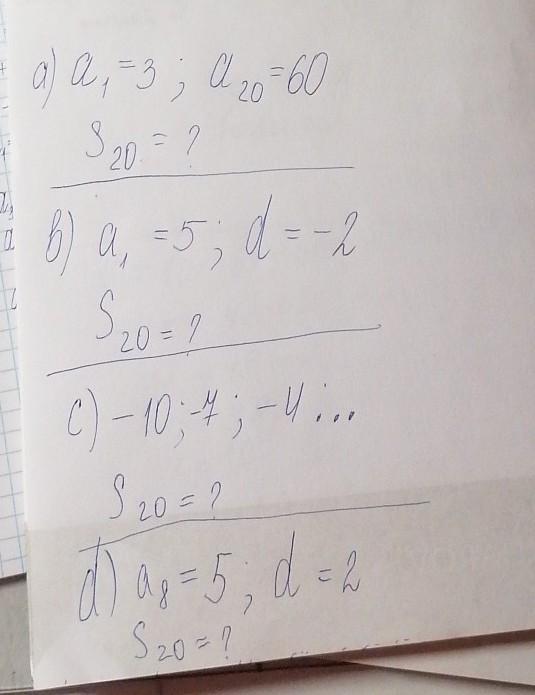 a) a₁ = 3 ; a₂₀ = 60
S₂₀ = ?
b) a₁ = 5 ; d = -2
S₂₀ = ?
c) -10 ; -7 ; -4 ; ...
S₂₀ = ?
d) a₈ = 5 ; d = 2
S₂₀ = ?